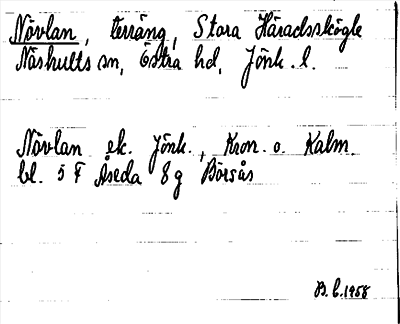 Növlan, terräng, Stora Häradsskögle
Näshults sn, Östra hd, Jönk. l.
Növlan ek. Jönk., Kron. o. Kalm.
bl. 5 F Åseda 8 g Börsås
B. L. 1958